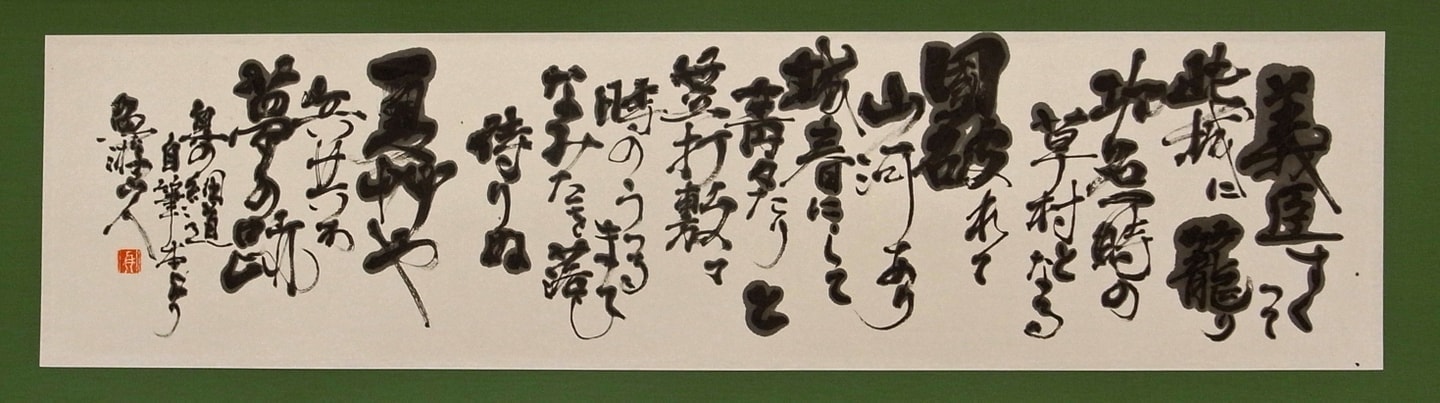 義臣すくつて
此城に籠り
功名一時の
草村となる
國破れて
山河あり
城春にして
青々たりと
笠打敷て
時のうつるまて
なみたを落し
侍りぬ
夏艸や
兵共か
夢の跡
奥の細道
自筆本より